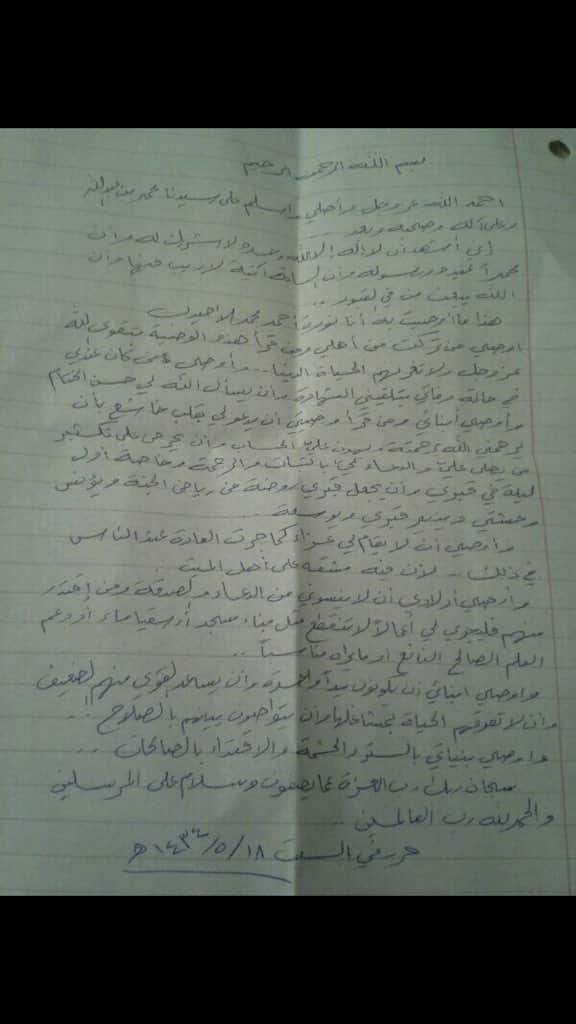 بسم الله الرحمن الرحيم
احمد الله عز وجل وأصلي وأسلم على سيدنا محمد بن عبدالله
وعلى آله وصحبه وبعد
إني أشهد أن لا اله إلا الله وحده لا شريك له وأن
محمداً عبده ورسوله وأن الساعة آتية لا ريب فيها وأن
الله يبعث من في القبور ..
هذا ما أوصيت به أنا نورة أحمد محمد
اوصي من تركت من أهلي ومن قرأ هذه الوصية بتقوى الله
عز وجل ولا تغرنهم الحياة الدنيا .. وأوصي من كان عندي
في حالة وفاتي بتلقيني الشهادة وأن يسأل الله لي حسن الختام
وأوصي أبنائي ومن قرأ وصيتي أن يدعو لي بقلب خاشع بأن
يرحمني الله برحمته ويهون عليّ الحساب وأن يحرص على تكثير
من يصلي عليّ والدعاء لي بالثبات والرحمة وخاصة أول
ليلة في قبري وأن يجعل قبري روضة من رياض الجنة ويؤنس
وحشتي وينير قبري ويوسعه
وأوصي أن لا يقام لي عزاء كما جرت العادة عند الناس
في ذلك .. لأن فيه مشقة على أهل الميت ..
وأوصي أولادي أن لا ينسوني من الدعاء والصدقة ومن إقتدر
منهم فليجري لي أعمالاً لا تنقطع مثل بناء مسجد أو سقيا ماء أو دعم
العلم الصالح النافع أو ما يراه مناسباً ..
وأوصي ابنائي أن يكونوا يداً واحدة وأن يساعد القوي منهم الضعيف
وأن لا تفرقهم الحياة بمشاغلها وأن يتواصون بينهم بالصلاح !! ..
وأوصي بنياتي بالستر والحشمة والاقتداء بالصالحات ..
سبحان ربك رب العزة عما يصفون وسلام على المرسلين
والحمد لله رب العالمين ..
حرر في السبت ١٨/٥/ هـ